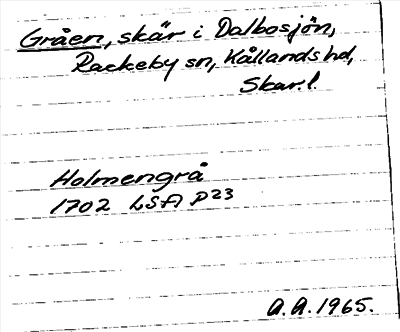 Gråen, skär i Dalbosjön,
Rackeby sn, Kållands hd,
Skar.l.
Holmengrå
1702 LSA P23
A.A. 1965.